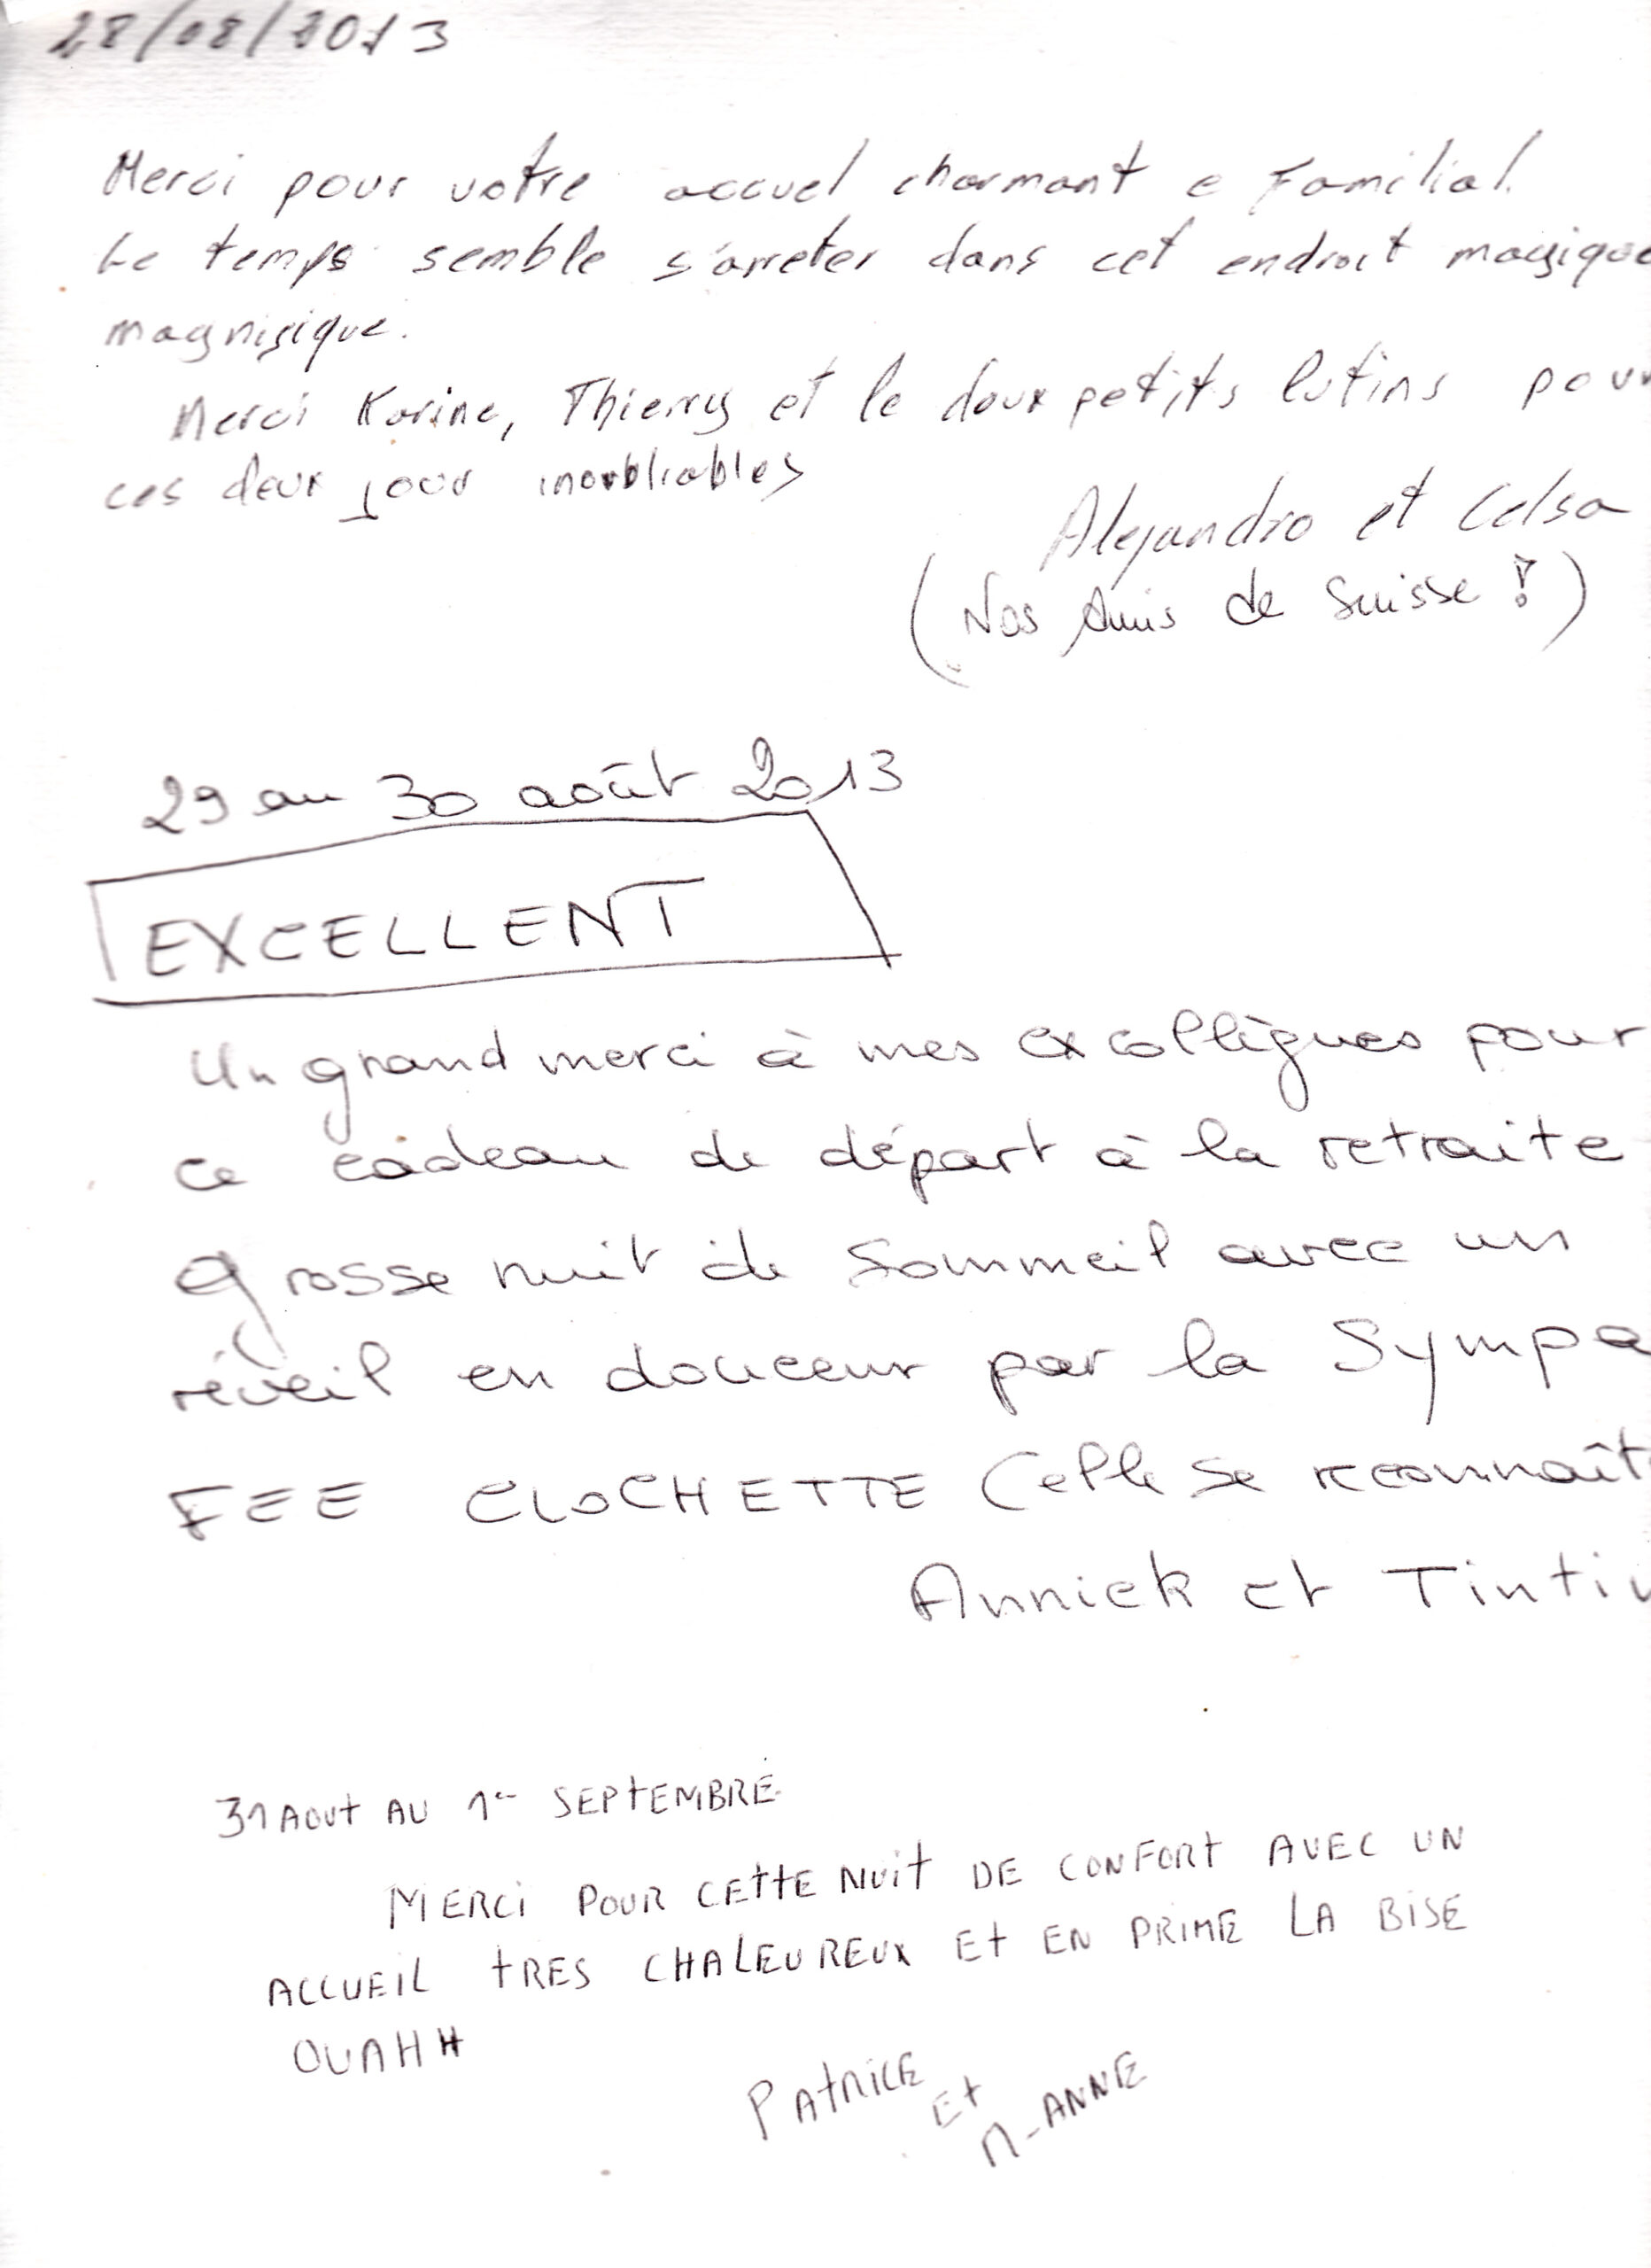 28/08/2013
Merci pour votre accuel charmant e Familial.
Le temps semble s'arreter dans cet endroit magique
magnifique.
Merci Karine, Thierry et le doux petits lutins pour
ces deux jour inoubliables
Alejandro et Celsa
(Nos Amis de Suisse !)
29 au 30 août 2013
EXCELLENT
Un grand merci à mes ex collègues pour
ce cadeau de départ à la retraite
Grosse nuit de sommeil avec un
réveil en douceur par la Sympa
FEE CLOCHETTE (elle se reconnaît
Annick et Tintin
31 AOUt AU 1er SEPtEMBRE
MERCi POUR CEttE NUit DE CONFORt AVEC UN
ACCUEiL tRES CHALEUREUX Et EN PRIME LA BISE
OUAHH
PAtRiCE Et M-ANNE